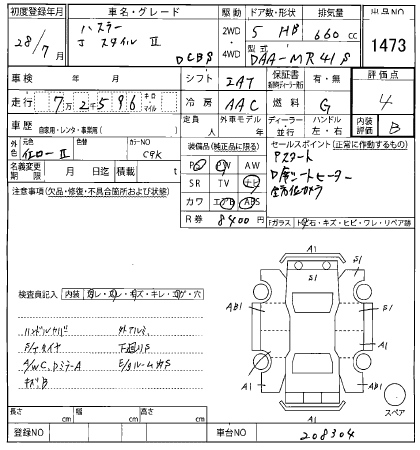 初度登録年月 車名・グレード 駆動 ドア数・形状 排気量 出品NO
28/7月 ハスラー 2WD 5 HB 660cc 1473
J スタイル Ⅱ 4WD
DCBS 型式 DAA-MR41S
車検 年 月 シフト IAT 保証書 有・無 評価点
走行 7万2千596 キロ・マイル 冷房 AAC 燃料 G 4
車歴 自家用・レンタ・事業用( ) 定員 人 外車モデル 年 ディーラー 並行 ハンドル 左・右 内装評価 B
色 元色 イエローⅡ 色替 カラーNO C9K
装備品(純正品に限る) セールスポイント(正常に作動するもの)
PS PW AW Pスタート
名義変更期限 月 日迄 積載 t SR TV ナビ D席シートヒーター
注意事項(欠品・修復・不具合箇所および状態) カワ エアB ABS 全方位カメラ
R券 8400円 Fガラス トビ石・キズ・ヒビ・ワレ・リペア跡
A1
S1 S1
A1
AB1 AB1
検査員記入 内装
ハンドルカバー 外アルミ
下廻りS
A/W C、DミラーA E/gルームカS
キズ、B
S1 A1
A1
スペア
長さ cm 幅 cm 高さ cm
登録NO 車台NO 208304